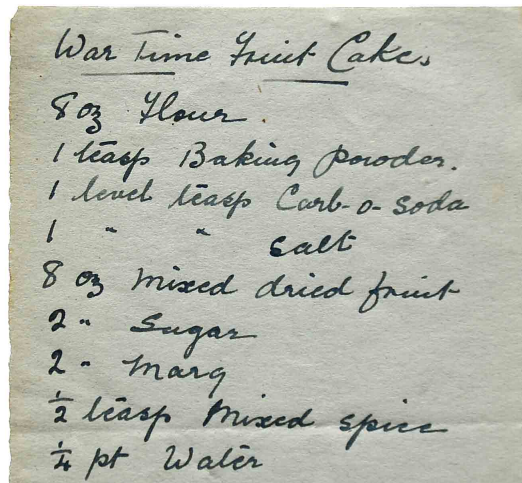 War Time Fruit Cake.
8 oz Flour.
1 teasp Baking Powder.
1 level teasp Carb-o-soda
1 " " salt
8 oz mixed dried fruit
2 " Sugar
2 " Marg
½ teasp Mixed spice
¼ pt Water